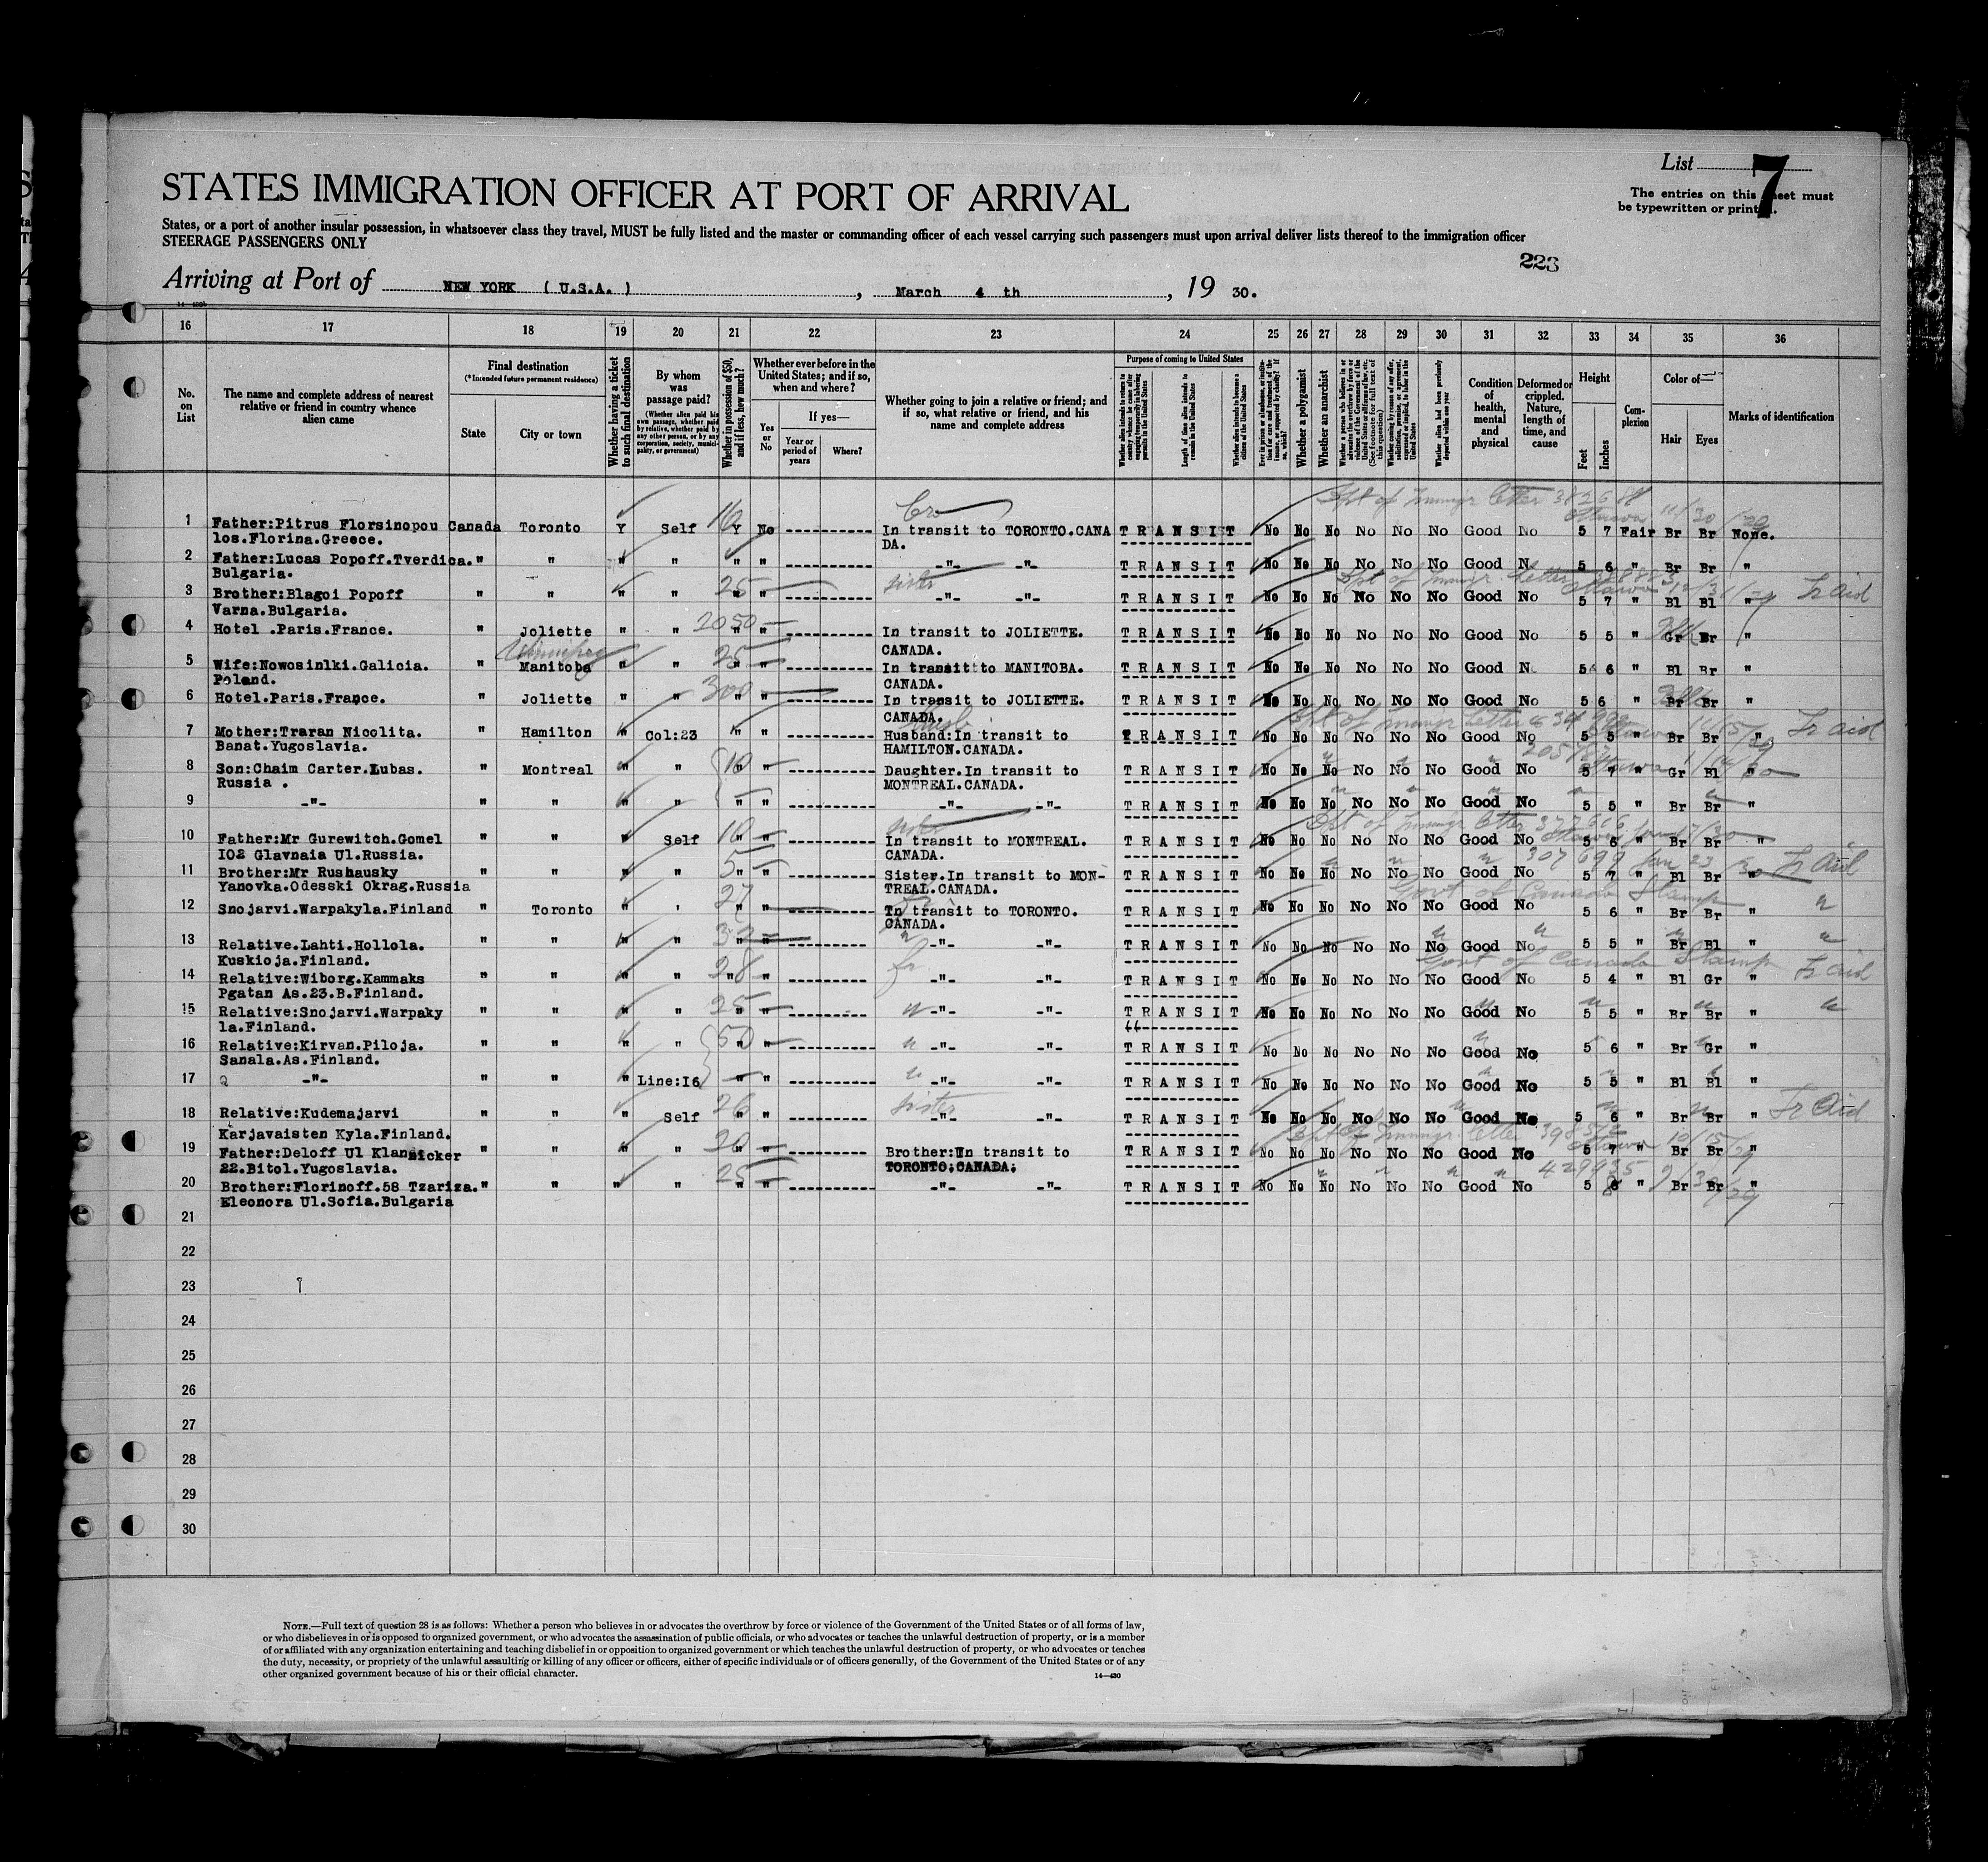 List 7
The entries on this sheet must
be typewritten or printed.
STATES IMMIGRATION OFFICER AT PORT OF ARRIVAL
States, or a port of another insular possession, in whatsoever class they travel, MUST be fully listed and the master or commanding officer of each vessel carrying such passengers must upon arrival deliver lists thereof to the immigration officer
STEERAGE PASSENGERS ONLY
223
Arriving at Port of NEW YORK ( U.S.A. ), March 4 th, 19 30.
16 17 18 19 20 21 22 23 24 25 26 27 28 29 30 31 32 33 34 35 36
No. on List
The name and complete address of nearest relative or friend in country whence alien came
Final destination
(*Intended future permanent residence)
State
City or town
Whether having a ticket to such final destination
By whom was passage paid?
(Whether alien paid his own passage, whether paid by relative, whether paid by any other person, or by any corporation, society, municipality, or government)
Whether in possession of $50, and if less, how much?
Whether ever before in the United States; and if so, when and where?
Yes or No
If yes—
Year or period of years
Where?
Whether going to join a relative or friend; and if so, what relative or friend, and his name and complete address
Purpose of coming to United States
Length of time alien intends to remain in the United States
Whether alien intends to become a citizen of the United States
Whether a polygamist
Whether an anarchist
Whether alien had been previously deported within one year
Condition of health, mental and physical
Deformed or crippled. Nature, length of time, and cause
Height
Feet
Inches
Complexion
Color of—
Hair
Eyes
Marks of identification
1 Father:Pitrus Florsinopou Canada Toronto Y Self 16 Y No In transit to TORONTO.CANA TRANSIT No No No No No No Good No 5 7 Fair Br Br None.
los.Florina.Greece. DA.
2 Father:Lucas Popoff.Tverdica. " " " " " " -"- -"- TRANSIT No No No No No No Good No 5 6 " Br Br "
Bulgaria. sister
3 Brother:Blagoi Popoff " " " " 25 " " -"- -"- TRANSIT No No No No No No Good No 5 7 " Bl Bl " Tr aid
Varna.Bulgaria.
4 Hotel .Paris.France. " Joliette " " 2050 " " In transit to JOLIETTE. TRANSIT No No No No No No Good No 5 5 " Gr Br "
CANADA.
5 Wife:Nowosinlki.Galicia. " Manitoba " " 25 " " In transit to MANITOBA. TRANSIT No No No No No No Good No 5 6 " Bl Br "
Poland. CANADA.
6 Hotel.Paris.France. " Joliette " " 300 " In transit to JOLIETTE. TRANSIT No No No No No No Good No 5 6 " Br Br "
CANADA.
7 Mother:Traran Nicolita. " Hamilton " Col:23 " " Husband:In transit to TRANSIT No No No No No No Good No 5 5 " Br Br " Tr aid
Banat.Yugoslavia. HAMILTON.CANADA.
8 Son:Chaim Carter.Lubas. " Montreal " " 10 " " Daughter.In transit to TRANSIT No No No No No No Good No 5 7 " Gr Bl "
Russia . MONTREAL.CANADA.
9 -"- " " " " " " -"- -"- TRANSIT No No No No No No Good No 5 5 " Br Br "
10 Father:Mr Gurewitch.Gomel " " " Self 10 " " In transit to MONTREAL. TRANSIT No No No No No No Good No 5 6 " Br Br "
IO2 Glavnaia Ul.Russia. CANADA.
11 Brother:Mr Rushausky " " " " 5 " " Sister.In transit to MON- TRANSIT No No No No No No Good No 5 7 " Bl Br " Tr aid
Yanovka.Odesski Okrag.Russia TREAL.CANADA. Govt of Canada Stamp
12 Snojarvi.Warpakyla.Finland " Toronto " ' 27 " " In transit to TORONTO. TRANSIT No No No No No No Good No 5 6 " Br Br " "
CANADA.
13 Relative.Lahti.Hollola. " " " " " " -"- -"- TRANSIT No No No No No No Good No 5 5 " Br Bl " "
Kuskioja.Finland. Govt of Canada Stamp
14 Relative:Wiborg.Kammaks " " " " 28 " " -"- -"- TRANSIT No No No No No No Good No 5 4 " Bl Gr " Tr aid
Pgatan As.23.B.Finland.
15 Relative:Snojarvi.Warpaky " " " " 25 " " -"- -"- TRANSIT No No No No No No Good No 5 5 " Br Br " "
la.Finland.
16 Relative:Kirvan.Piloja. " " " " 50 " " -"- -"- TRANSIT No No No No No No Good No 5 6 " Br Gr "
Sanala.As.Finland.
17 -"- " " " Line:I6 " " -"- -"- TRANSIT No No No No No No Good No 5 5 " Bl Bl "
18 Relative:Kudemajarvi " " " Self 26 " " sister -"- -"- TRANSIT No No No No No No Good No 5 6 " Br Br " Tr Aid
Karjavaisten Kyla.Finland.
19 Father:Deloff Ul Klansicker " " " " 20 " " Brother:In transit to TRANSIT No No No No No No Good No 5 7 " Br Br "
22.Bitol.Yugoslavia. TORONTO;CANADA;
20 Brother:Florinoff.58 Tzariza. " " " " 25 " " -"- -"- TRANSIT No No No No No No Good No 5 8 " Br Br "
Eleonora Ul.Sofia.Bulgaria
21
22
23
24
25
26
27
28
29
30
NOTE.—Full text of question 28 is as follows: Whether a person who believes in or advocates the overthrow by force or violence of the Government of the United States or of all forms of law,
or who disbelieves in or is opposed to organized government, or who advocates the assassination of public officials, or who advocates or teaches the unlawful destruction of property, or is a member
of or affiliated with any organization entertaining and teaching disbelief in or opposition to organized government or which teaches the unlawful destruction of property, or who advocates or teaches
the duty, necessity, or propriety of the unlawful assaulting or killing of any officer or officers, either of specific individuals or of officers generally, of the Government of the United States or of any
other organized government because of his or their official character.
14—430